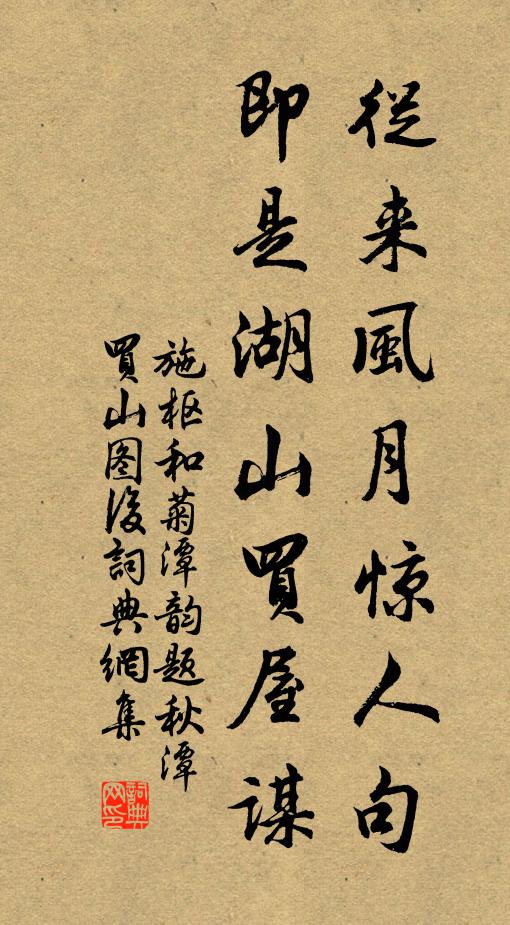 從来風月惊人句
即是湖山買屋謀
施枢和菊潭韵题秋潭
買山图後詞典網集
詞典网印